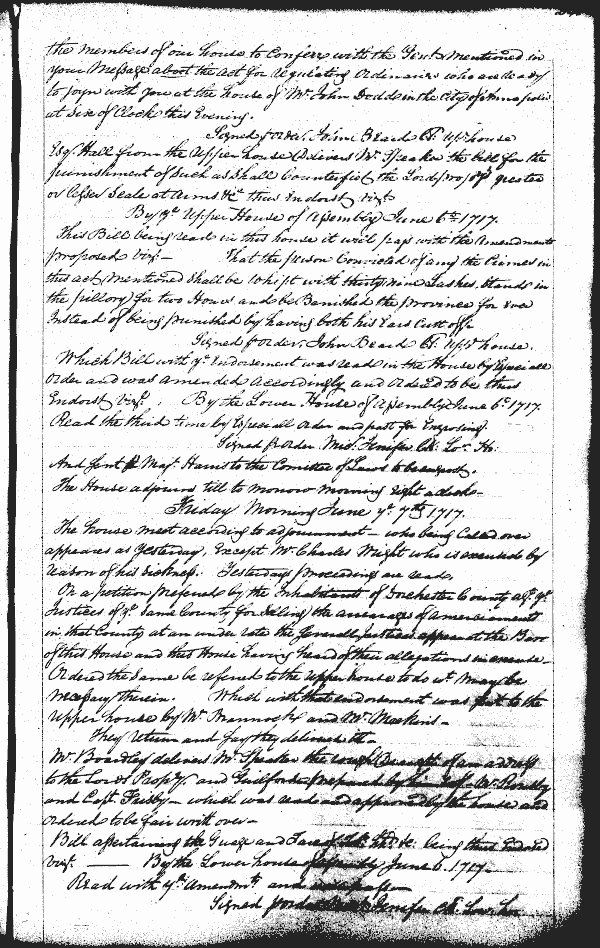 the members of our house to Conferr with the Gent. mentioned in
your Message about the Act for regulating Ordinaries who are ready
to joyn with you at the house of Mr. John Dodds in the City of Annapolis
at Six of Clock this Evening.
Signed p order, John Beard Cl. Upr. house
Esqr. Hall from the Upper house Delivers Mr. Speaker the bill for the
punishment of such as shall Counterfeit the Lord prop.ts greater
or lesser Seale at Arms &c. thus Endorst vizt.
By ye. Upper House of Assembly June 6th. 1717.
This Bill being read in this house it will pass with the Amendments
proposed vizt.— That the person Convicted of any the Crimes in
this act mentioned Shall be Whipt with thirty nine Lashes, Stand in
the pillory for two Hours and be Banished the province for Ever
Instead of being punished by having both his Ears Cutt off.
Signed p order, John Beard Cl. Upr. house.
Which Bill with ye. Endorsement was read in the House by Especiall
Order and was amended Accordingly and Ordered to be thus
Endorst vizt. By the Lower House of Assembly June 6th. 1717.
Read the third time by Especiall Order and past for Engrossing.
Signed p Order Mich. Jenifer Cl. Lor. Ho:
And Sent p Majr. Harris to the Comittee of Laws to be
The House adjourns till to morrow morning Eight a Clock—
Friday Morning June ye. 7th. 1717.
The house meet according to adjournment — who being Called over
appeares as Yesterday, Except Mr. Charles Wright who is excused by
reason of his Sickness. Yesterdays proceedings are read,
On a petition preferred by the Inhabitants of Dorchester County agt. ye.
Justices of ye. Same County for Selling the arrerages of amerciament
in that County at an under rate the Severall Justices appear at the Barr
of this House and this House having heard of their allegations in excuse—
Ordered the Same be referred to the upper house to do wt. may be
necessary therein. Which with that endorsement was sent to the
Upper house by Mr. Brannock and Mr. Mackeins—
They return and say they delivered it—
Mr. Bradley delivers Mr. Speaker the rough Draught of an address
to the Lord Propry. and Guilford prepared by Mr. Rousby
and Capt. Frisby— which was read and approved by the house and
ordered to be fair writt over—
Bill assertaining the Guage and Tare of &c. being thus Endorsed
vizt. —— By the Lower house of Assembly June 6. 1717—
Read with ye. Amendmts. and
Signed p order Jenifer Cl. Low. Ho.